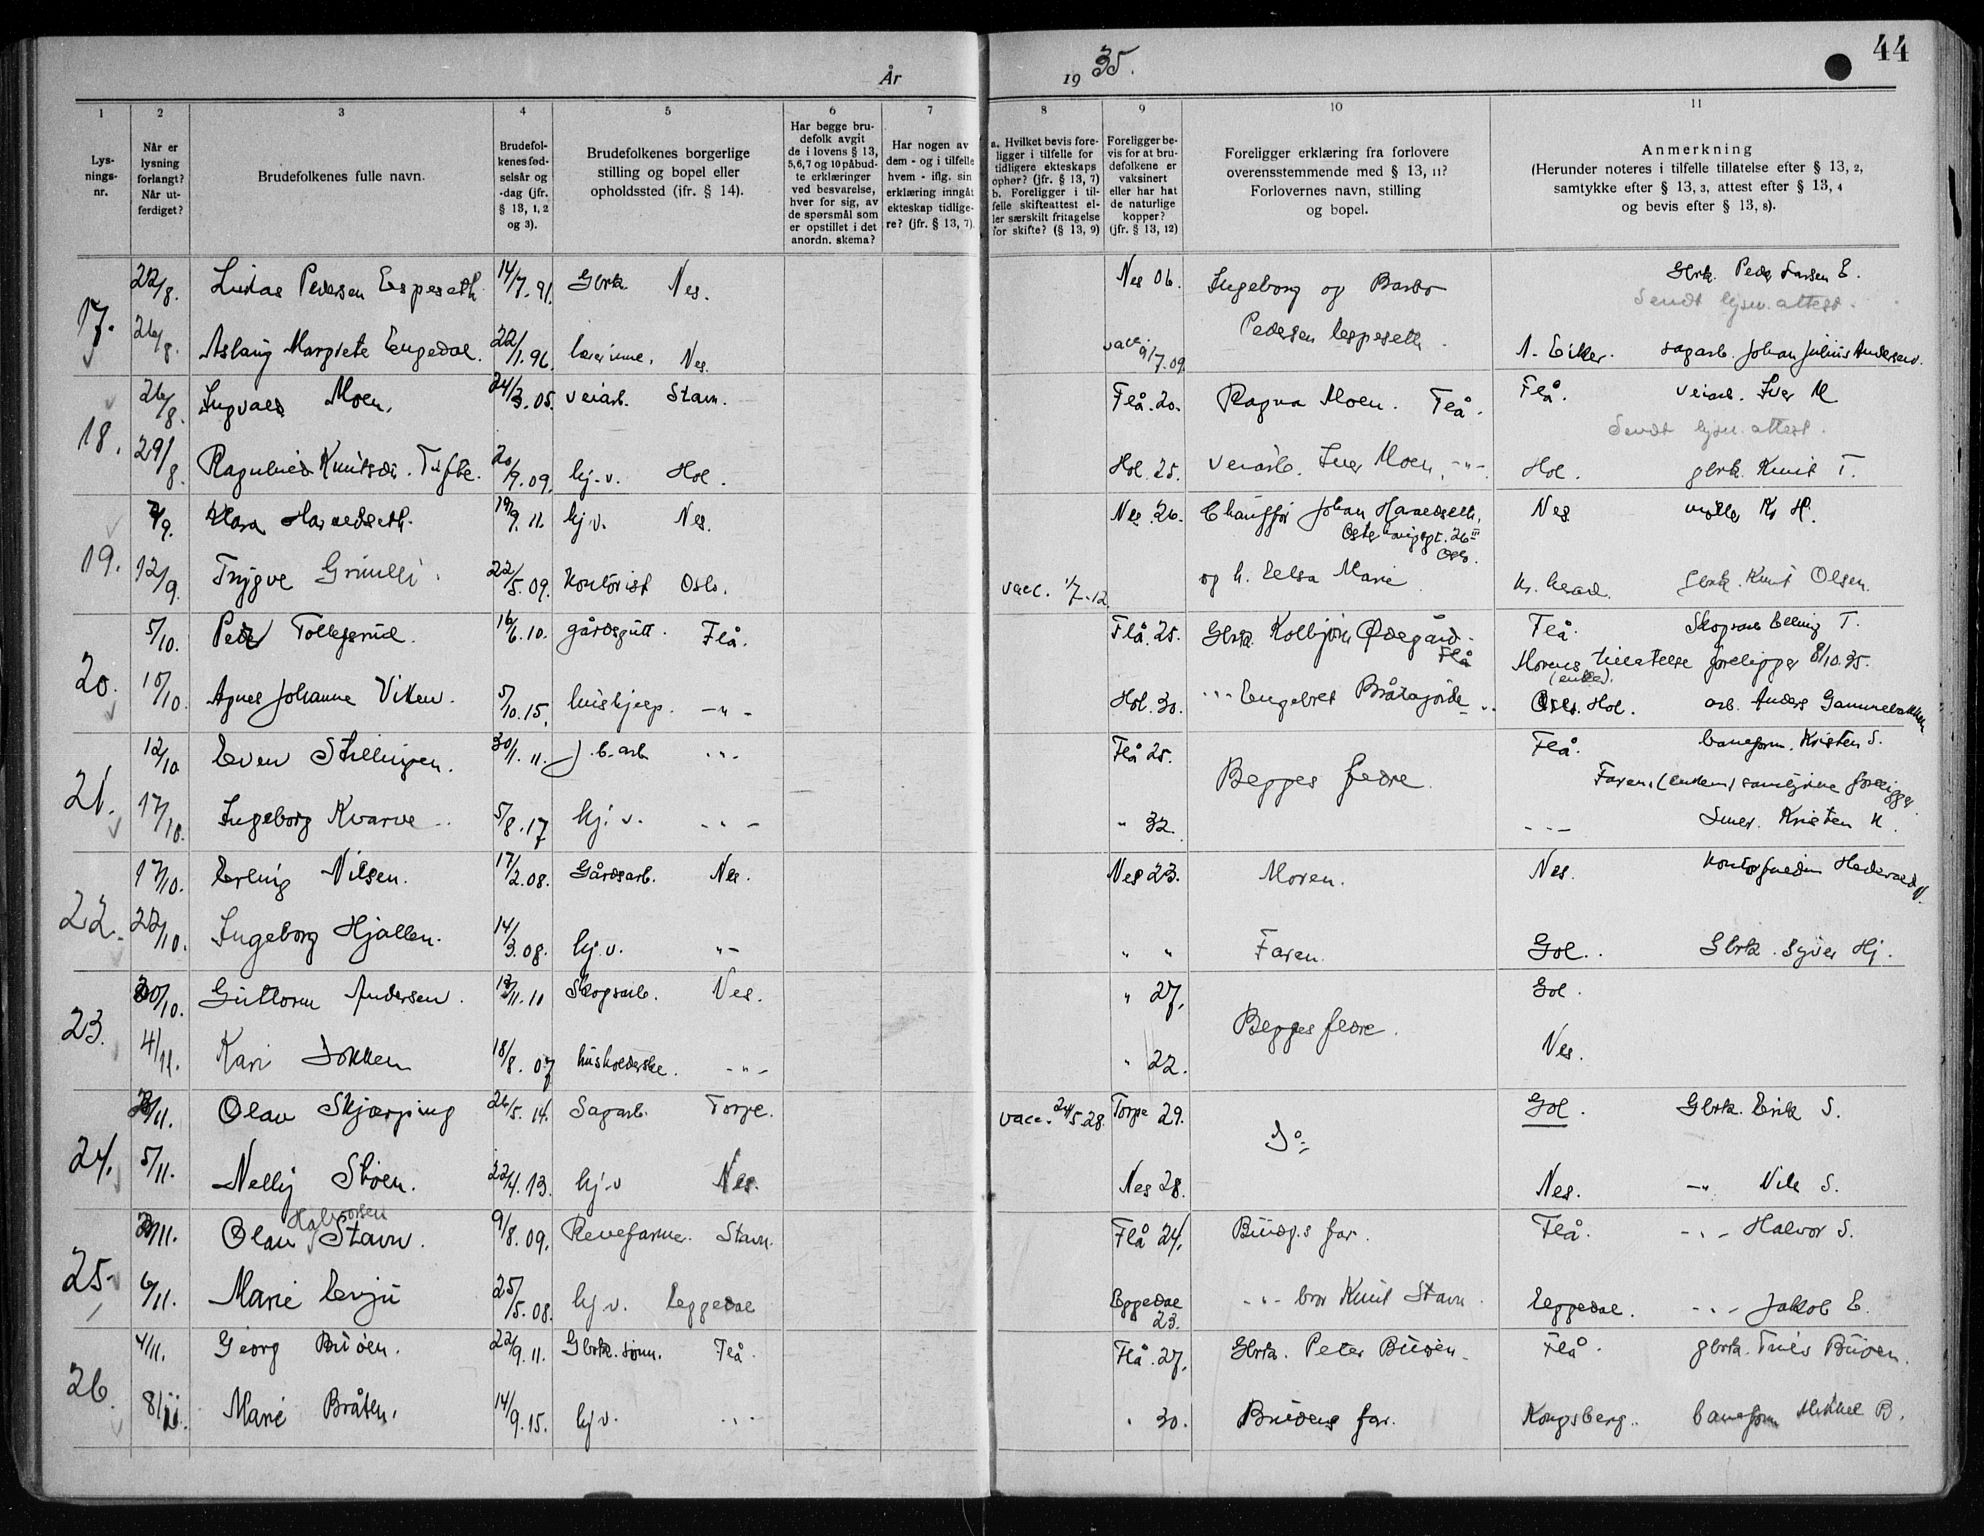 44
År 19 35.
1 2 3 4 5 6 7 8 9 10 11
Lys-
nings-
nr.
Når er
lysning
forlangt?
Når ut-
ferdiget?
Brudefolkenes fulle navn.
Brudefol-
kenes fød-
selsår og
-dag (jfr.
§ 13, 1, 2
og 3).
Brudefolkenes borgerlige
stilling og bopel eller
opholdssted (jfr. § 14).
Har begge bru-
defolk avgit
de i lovens § 13,
5,6,7 og 10 påbud-
te erklæringer
ved besvarelse,
hver for sig, av
de spørsmål som
er opstillet i det
anordn. skema?
Har nogen av
dem - og i tilfelle
hvem - iflg. sin
erklæring inngått
ekteskap tidlige-
re? (jfr. § 13, 7)
a. Hvilket bevis fore-
ligger i tilfelle for
tidligere ekteskaps
ophør? (jfr. § 13, 7)
b. Foreligger i til-
felle skifteattest el-
ler særskilt fritagelse
for skifte? (§ 13, 9)
Foreligger be-
vis for at bru-
defolkene er
vaksinert
eller har hat
de naturlige
kopper?
(jfr. § 13, 12)
Foreligger erklæring fra forlovere
overensstemmende med § 13, 11?
Forlovernes navn, stilling
og bopel.
Anmerkning
(Herunder noteres i tilfelle tillatelse efter § 13, 2,
samtykke efter § 13, 3, attest efter § 13, 4
og bevis efter § 13, 8).
17. 22/8. Pedersen Espeseth 14/7.91. Gbrk. Nes. Nes 06. Ingeborg og Gbrk. Peder Larsen E.
Sendt lysn.attest.
26/8. Aslaug Margrete Engedal. 22/1.96. lærerinne. Nes. vacc. 9/7.09. Pedersen Espeseth. Ø. Eiker. sagarb. Johan Julius Andersen.
18. 26/8. Ingvald Moen. 24/3.05. veiarb. Stavn. Flå.20. Ragna Moen. Flå. Flå. veiarb. Iver M
Sendt lysn.attest.
29/8. Ragnhild Knutsdr. Tufte. 20/9.09. hj.v. Hol. Hol.25. veiarb. Iver Moen, -"- Hol. gbrk. Knut T.
19. 7/9. Klara Haraldseth. 19/9.11. hj.v. Nes. Nes.26. Chauffør Johan Haraldseth, Nes
Osterhausgt. 26 III
Oslo.
12/9. Trygve Grimeli. 22/5.09. Kontorist Oslo. vacc. 1/7.12 og h. Elsa Marie Kr. herad. gbrk. Knut Olsen.
20. 5/10. Peder Tollefsrud. 16/6.10. gårdsgutt. Flå. Flå.25. Gbrk. Kolbjørn Ødegård. Flå Flå. Skogsarb. Elling T.
Morens tillatelse foreligger 8/10.35.
(enke).
10/10. Agnes Johanne Viken. 5/10.15. hushjelp. -"- Hol.30. -"- Engebret Bråtajorde -"- Hol. arb. Anders Gammelbakken
21. 12/10 Even Stillingen. 30/1.11. j.b.arb. -"- Flå 25. Begges fedre. Flå. baneform. Kristen S.
Farens (enkem) samtykke foreligger
17/10. Ingeborg Kvarve. 5/8.17 hj.v. -"- " 32. -"- Smed. Kristen K.
22. 17/10. Erling Nilsen. 17/2.08. Gårdsarb. Nes. Nes 23. Moren. Nes.
22/10. Ingeborg Hjallen. 14/3.08. hj.v. "- " " Faren. Gol. Gbrk. Syver Hj.
23. 30/10. Guttorm Andersen. 13/11.10 Skogsarb. Nes. " 27. Begges fedre. Gol.
4/11. Kari Dokken 18/8.07 husholderske. -"- " 22. Nes.
24. 2/11. Olav Skjærping 26/5.14. Sagarb. Torpe. vacc. 24/5.28. Torpe 29. Do Gol. Gbrk. Erik S.
5/11. Nelly Støen. 22/4.13. hj.v Nes. Nes 28. Nes. -" Nils S.
25. 2/11. Olav Halvorsen Stavn. 9/8.09. Revefarmer. Stavn. Flå 24. Brudg.s far. Flå. -"- Halvor S.
6/11. Marie Evju 25/5.08. hj.v. Eggedal Eggedal 23. -"- bror Knut Stavn. Eggedal. -"- Jakob E.
26. 4/11. Georg Buøen. 22/9.11. Gbrk.sønn. Flå. Flå.27. Gbrk. Peter Buøen. Flå. gbrk. Buøen.
8/11. Marie Bråten. 14/9.15. hj.v. -"- " 30. Brudens far. Kongsberg. baneform Mikkel B.